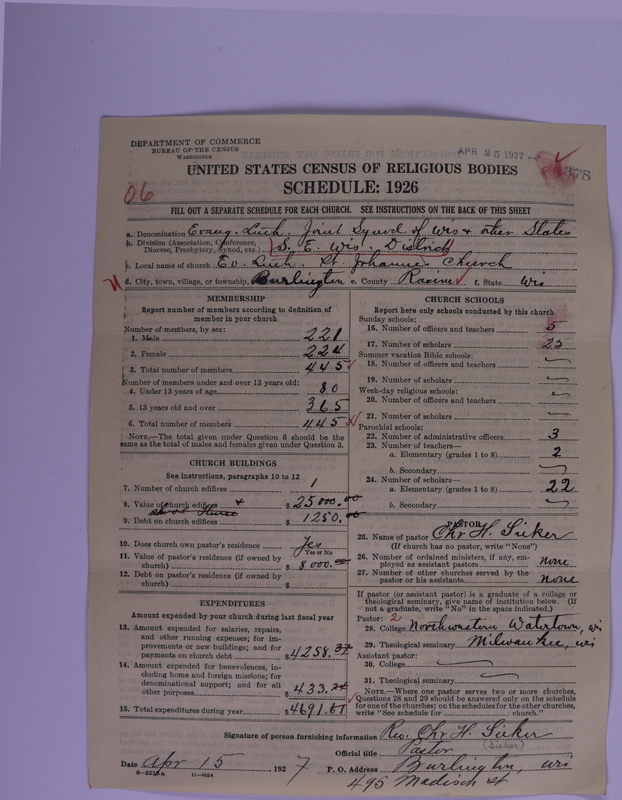 DEPARTMENT OF COMMERCE
BUREAU OF THE CENSUS
WASHINGTON
APR 25 1927
378
UNITED STATES CENSUS OF RELIGIOUS BODIES
SCHEDULE: 1926
06
FILL OUT A SEPARATE SCHEDULE FOR EACH CHURCH. SEE INSTRUCTIONS ON THE BACK OF THIS SHEET
a. Denomination Evang. Luth. Joint Synod of Wis & other States
b. Division (Association, Conference, Diocese, Presbytery, Synod, etc.) S. E. Wis. District
c. Local name of church Ev. Luth. St. Johannes Church
d. City, town, village, or township, Burlington e. County Racine f. State Wis
MEMBERSHIP
Report number of members according to definition of member in your church
Number of members, by sex:
1. Male 221
2. Female 224
3. Total number of members 445
Number of members under and over 13 years old:
4. Under 13 years of age 80
5. 13 years old and over 365
6. Total number of members 445
NOTE.—The total given under Question 6 should be the same as the total of males and females given under Question 3.
CHURCH BUILDINGS
See instructions, paragraphs 10 to 12
7. Number of church edifices 1
8. Value of church edifices $25000.00
9. Debt on church edifices $1250.00
10. Does church own pastor's residence Yes
Yes or No
11. Value of pastor's residence (if owned by church) $8000.00
12. Debt on pastor's residence (if owned by church) $
EXPENDITURES
Amount expended by your church during last fiscal year
13. Amount expended for salaries, repairs, and other running expenses; for improvements or new buildings; and for payments on church debt $4258.37
14. Amount expended for benevolences, including home and foreign missions; for denominational support; and for all other purposes $433.24
15. Total expenditures during year $4691.61
CHURCH SCHOOLS
Report here only schools conducted by this church
Sunday schools:
16. Number of officers and teachers 5
17. Number of scholars 25
Summer vacation Bible schools:
18. Number of officers and teachers
19. Number of scholars
Week-day religious schools:
20. Number of officers and teachers
21. Number of scholars
Parochial schools:
22. Number of administrative officers 3
23. Number of teachers—
a. Elementary (grades 1 to 8) 2
b. Secondary
24. Number of scholars—
a. Elementary (grades 1 to 8) 22
b. Secondary
PASTOR
25. Name of pastor Chr H. Sieker
(If church has no pastor, write "None")
26. Number of ordained ministers, if any, employed as assistant pastors none
27. Number of other churches served by the pastor or his assistants none
If pastor (or assistant pastor) is a graduate of a college or theological seminary, give name of institution below. (If not a graduate, write "No" in the space indicated.)
Pastor: 2
28. College Northwestern Watertown, Wis
29. Theological seminary Milwaukee, Wis
Assistant pastor:
30. College
31. Theological seminary
NOTE.—Where one pastor serves two or more churches, Questions 28 and 29 should be answered only on the schedule for one of the churches; on the schedules for the other churches, write "See schedule for church."
Signature of person furnishing information Rev. Chr H. Sieker
(Sieker)
Official title Pastor
Date Apr 15, 1927
P. O. Address Burlington, Wis
8-551 a 11-9054
495 Madison St